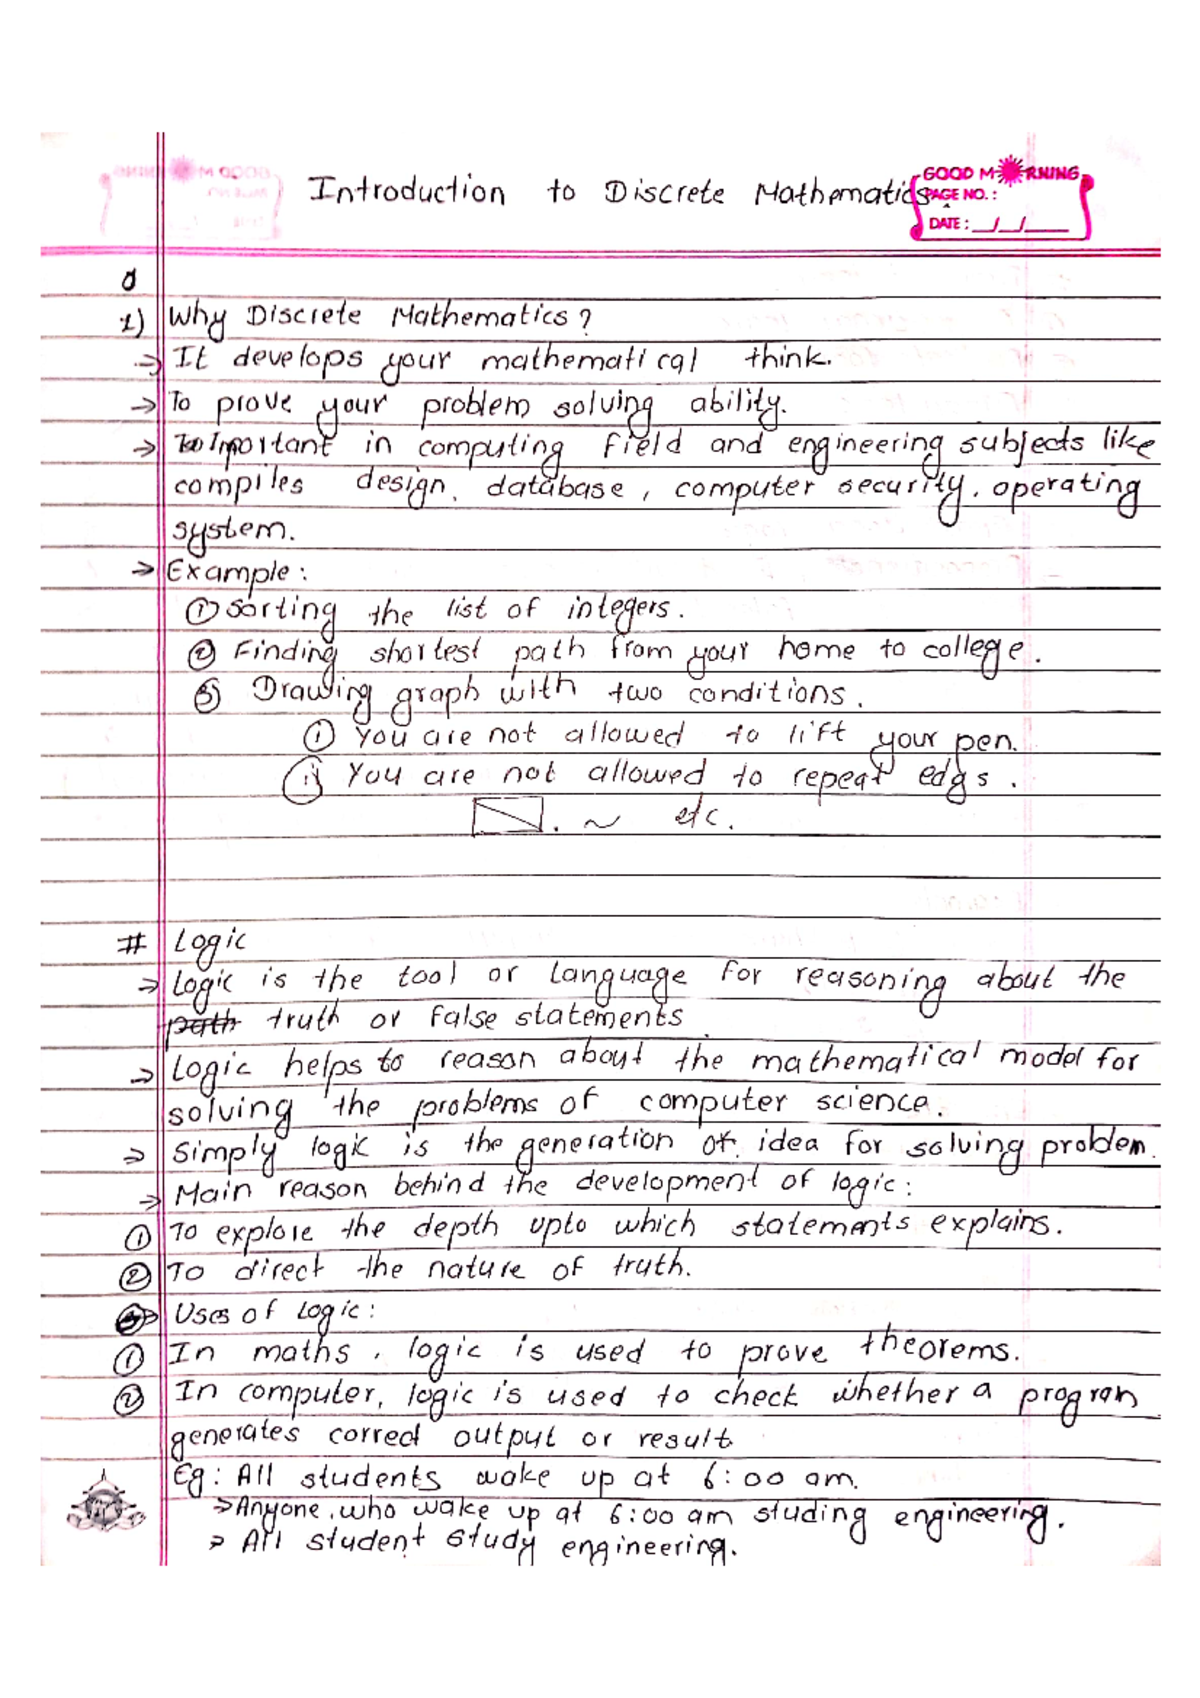 Introduction to Discrete Mathematics.
GOOD MORNING
PAGE NO. :
DATE : __/__/____
1) Why Discrete Mathematics?
→ It develops your mathematical think.
→ To prove your problem solving ability.
→ Important in computing field and engineering subjects like
compiles design, database, computer security, operating
system.
→ Example:
① Sorting the list of integers.
② Finding shortest path from your home to college.
③ Drawing graph with two conditions.
ⓘ You are not allowed to lift your pen.
ii) You are not allowed to repeat edgs.
. ~ etc.
# Logic
→ Logic is the tool or language for reasoning about the
path truth or false statements
→ Logic helps to reason about the mathematical model for
solving the problems of computer science.
→ Simply logic is the generation of idea for solving problem.
→ Main reason behind the development of logic:
① To explore the depth upto which statements explains.
② To direct the nature of truth.
→ Uses of Logic:
① In maths, logic is used to prove theorems.
② In computer, logic is used to check whether a program
generates correct output or result
Eg: All students wake up at 6:00 am.
→ Anyone, who wake up at 6:00 am studing engineering.
→ All student study engineering.